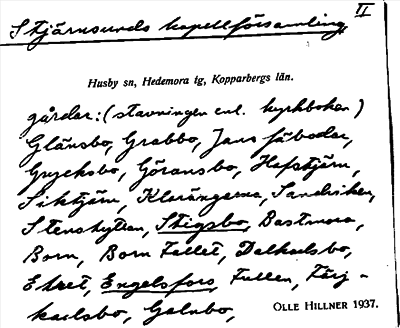 II
Stjärnsunds kapellförsamling
Husby sn, Hedemora tg, Kopparbergs län.
gårdar: (stavningen enl. kyrkboken)
Glänsbo, Grabbo, Jans fäbodar,
Göransbo, Hafstjärn,
Siktjärn, Klarängarna,
Stenshyttan, Stigsbo, Bastmora,
Born, Born Fallet, Dalkarlsbo,
Engelsfors, Fullen, Färj-
karlsbo,
OLLE HILLNER 1937.